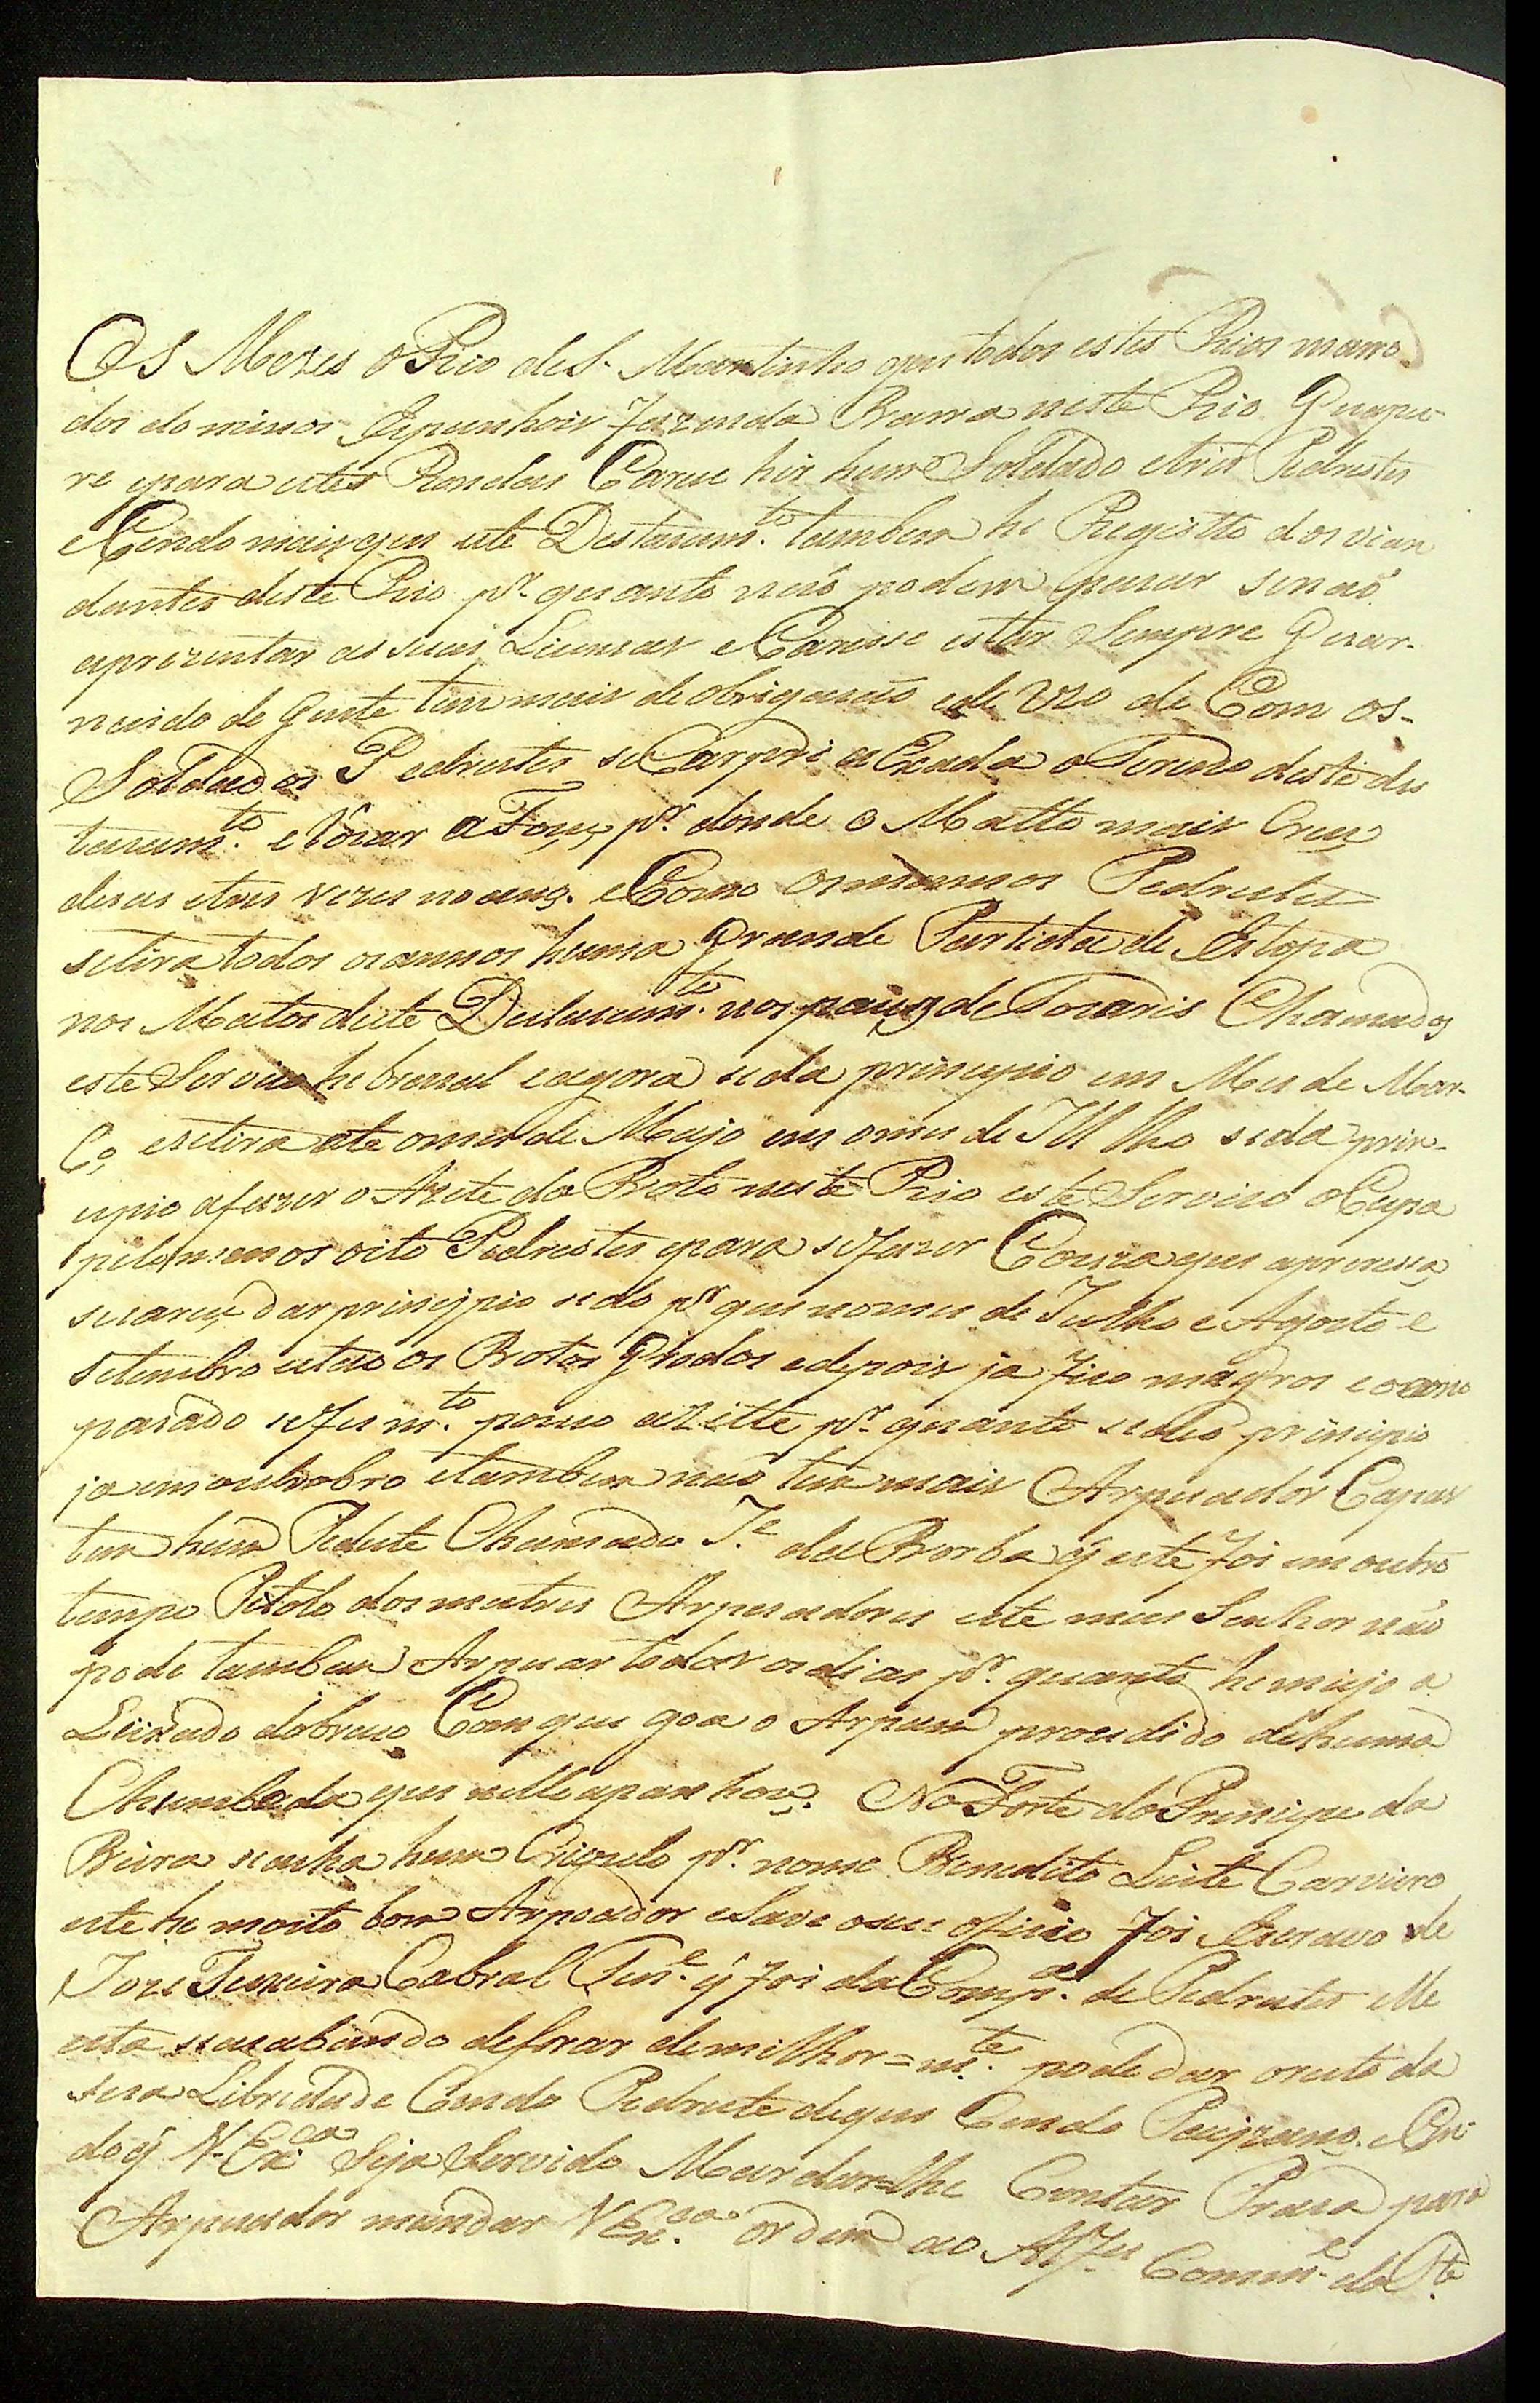 Os Mezes o Rio de S. Martinho que todos estes Rios mano
dos dominos Espanhois fazenda Barra neste Rio Guapo-
re epara estes Rondas Carese hir hum Soldado etris Pedrestes
eCendo mais que este Destacam.to tambem he Registto dos vian
dantes deste Rio p.r quanto naõ podem pasar senaõ
aprezentar as suas Licensas eCarisse estar Sempre Guar-
nicido de Gente tem mais de obrigasaõ ede Uzo de Com os-
Soldados Pedrestes se Carpir a Enxada o Terreno deste des
tacam.to e Rosar a Fouse p.r donde o Matto mais Cres,
desas etres vezes no anno. eComo os mesmos Pedrestes
setira todos os annos huma Grande Partida de Estopa
nos Matos deste Destacam.to nos paus de Tocaris Chamados
este Servico he brasal eagora seda principio em Mes de Mar-
Co, esetira ate omes de Majo em omes de JUlho seda prin-
cipio afazer o Azete do Boto neste Rio este Servico oCupa
pelo menos oito Pedrestes epara sefazer Couza que aparessa
secarese dar principio sedo p.r que nomes de Julho e Agosto e
Setembro estaõ os Botos Gordos edepois ja fico magros eoanno
pasado sefes m.to pouco azeitte p.r quanto sedeo principio
ja em outobro etambem naõ tem mais Arpuador Capas
tem hum Pedeste Chamado J.e da Borba q̃ este foi em outro
tempo Pitolo dos mestres Arpuadores este meu Senhor naõ
pode tambem Arpuar todos os dias p.r quanto he meijo a
Leixado dobraso Com que joga o Arpam prosedido dehuma
Chumbada que nelle apanhou. No Forte do Principe da
Beira seacha hum Crioulo p.r nome Benedito Leite Carneiro
este he moito bom Arpoador eSave oseu oficio foi Escravo de
Joze Teixeira Cabral Ten.e q̃ foi da Comp.a de Pedrestes elle
esta seacabando deforar elemilhor=m.te pode dar oresto da
sua Libredade Cendo Pedreste doque Cendo Paizano. eCen
do q̃ V.Ex.ca Seja Servido Mardar=lhe Centar Prasa para
Arpuador mandar V.Ex.ca ordem ao Alf.es Comm.e do Fte.